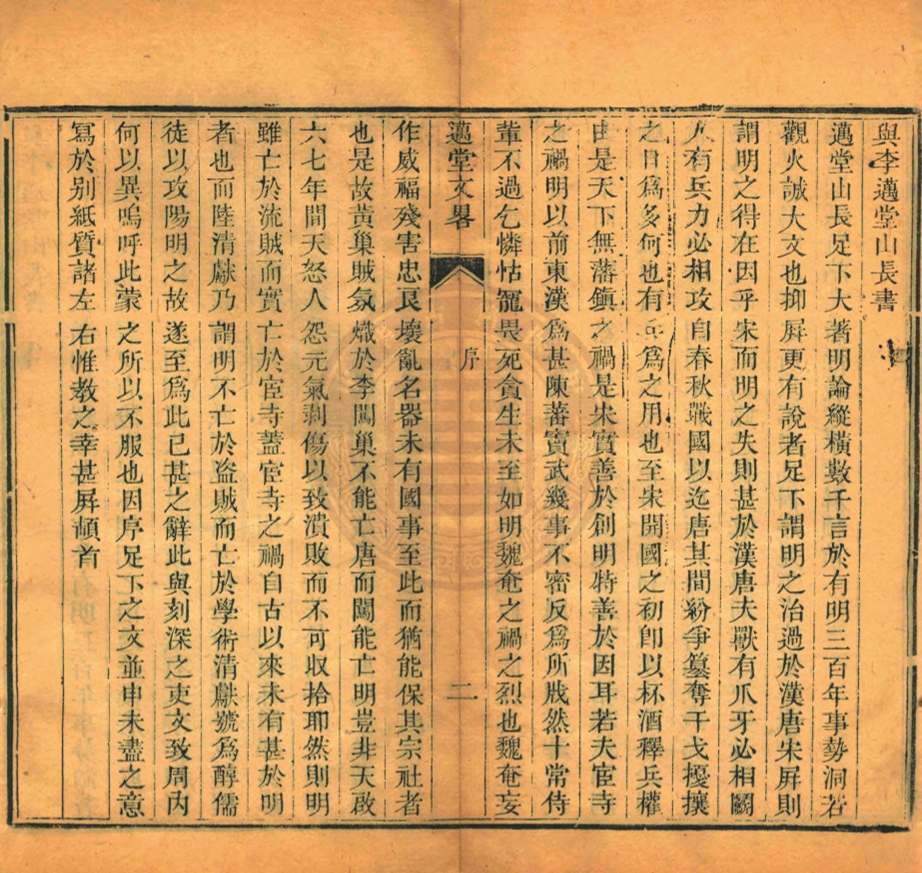 與李邁堂山長書
邁堂山長足下大著明論縱橫數千言於有明三百年事勢洞若
觀火誠大文也抑屏更有說者足下謂明之治過於漢唐宋屏則
謂明之得在因乎宋而明之失則甚於漢唐夫獸有爪牙必相鬬
人有兵力必相攻自春秋戰國以迄唐其間紛爭簒奪干戈擾攘
之日爲多何也有兵爲之用也至宋開國之初卽以杯酒釋兵權
由是天下無藩鎭之禍是宋實善於創明特善於因耳若夫宦寺
之禍明以前東漢爲甚陳蕃竇武幾事不密反爲所戕然十常侍
輩不過乞憐怙寵畏死貪生未至如明魏奄之禍之烈也魏奄妄
邁堂文畧
序
二
作威福殘害忠良壞亂名器未有國事至此而猶能保其宗社者
也是故黃巢賊氛熾於李闖巢不能亡唐而闖能亡明豈非天啟
六七年間天怒人怨元氣剥傷以致潰敗而不可収拾耶然則明
雖亡於流賊而實亡於宦寺蓋宦寺之禍自古以來未有甚於明
者也而陸清獻乃謂明不亡於盜賊而亡於學術清獻號爲醇儒
徒以攻陽明之故遂至爲此已甚之辭此與刻深之吏文致周內
何以異嗚呼此蒙之所以不服也因序足下之文並申未盡之意
寫於别紙質諸左右惟教之幸甚屏頓首